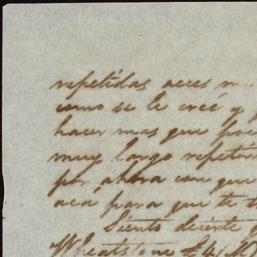 repetidas veces
como se lo creé y
hacer mas que
muy largo
por ahora con que
acá para que te
Siento decirte
Wheatstone £4